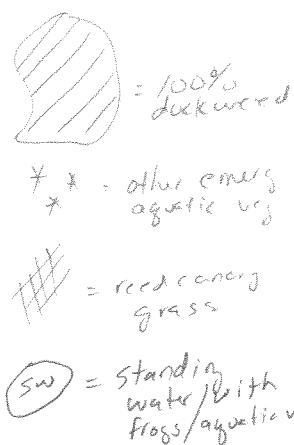 = 100%
duckweed
- other emerg
aquatic veg
= reed canary
grass
SW = standin
water/with
frogs/aquatic v